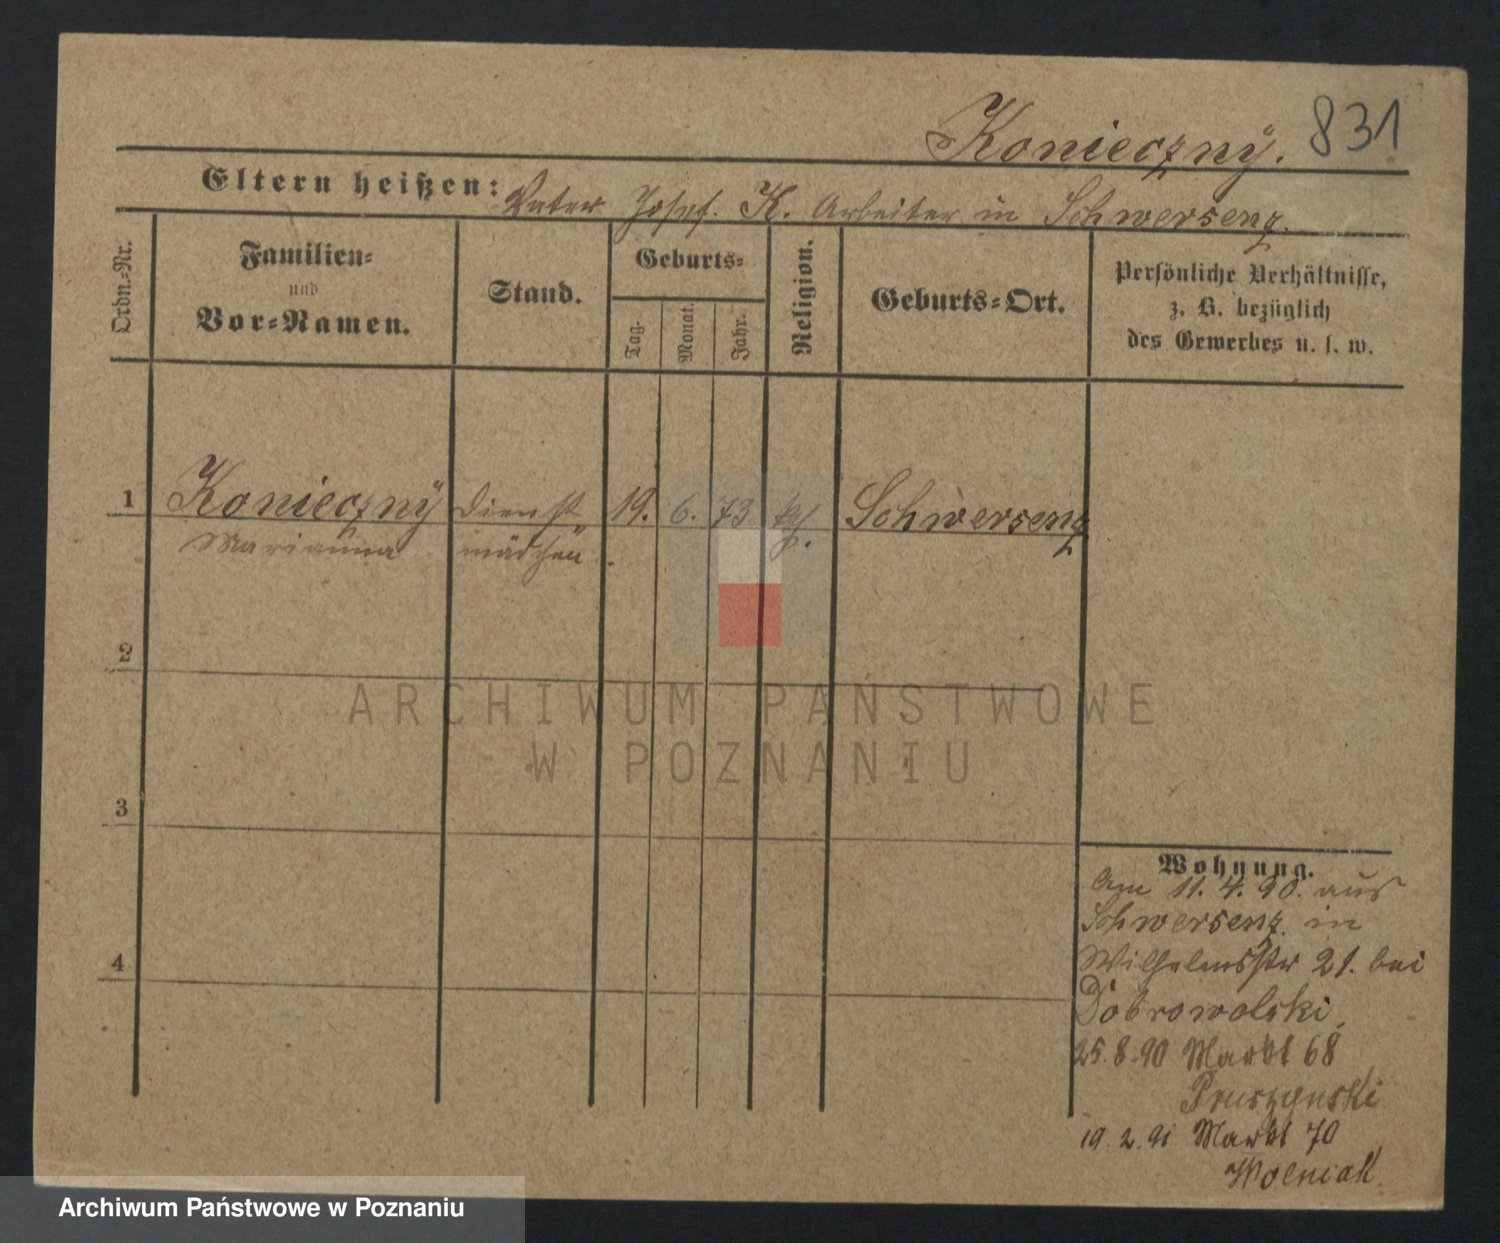 Konieczny. 831
Eltern heißen: Vater Josef. K. Arbeiter in Schwersenz.
Ordn.=Nr.
Familien=
und
Vor=Namen.
Stand.
Geburts=
Tag.
Monat.
Jahr.
Religion.
Geburts=Ort.
Persönliche Verhältnisse,
z. B. bezüglich
des Gewerbes u. s. w.
1 Konieczny Dienst 19. 6. 73 kth. Schwersenz
Marianna mädchen
2
3
4
Wohnung.
Am 11. 4. 90. aus
Schwersenz. in
Wilhelmsstr 21. bei
Dobrowolski,
25. 8. 90 Markt 68
Pruszynski
19. 2. 91 Markt 70
Wolniak.
ARCHIWUM PAŃSTWOWE
W POZNANIU
Archiwum Państwowe w Poznaniu